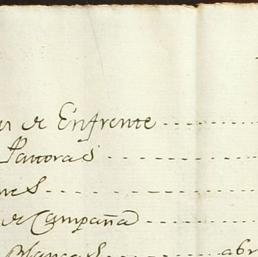 de Enfrente
Pastoras
nes
de Campaña
Blancas abr